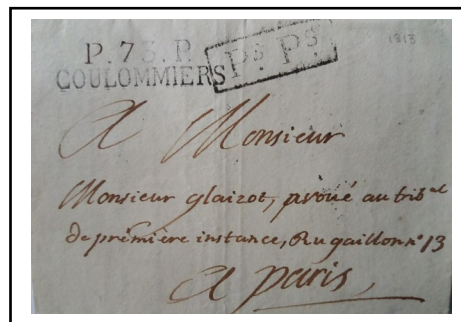 P.73.P.
COULOMMIERS
Ps. Ps.
1813
A Monsieur
Monsieur glaizot, avoué au tribal
de première instance, Rue gaillon n° 13
A paris